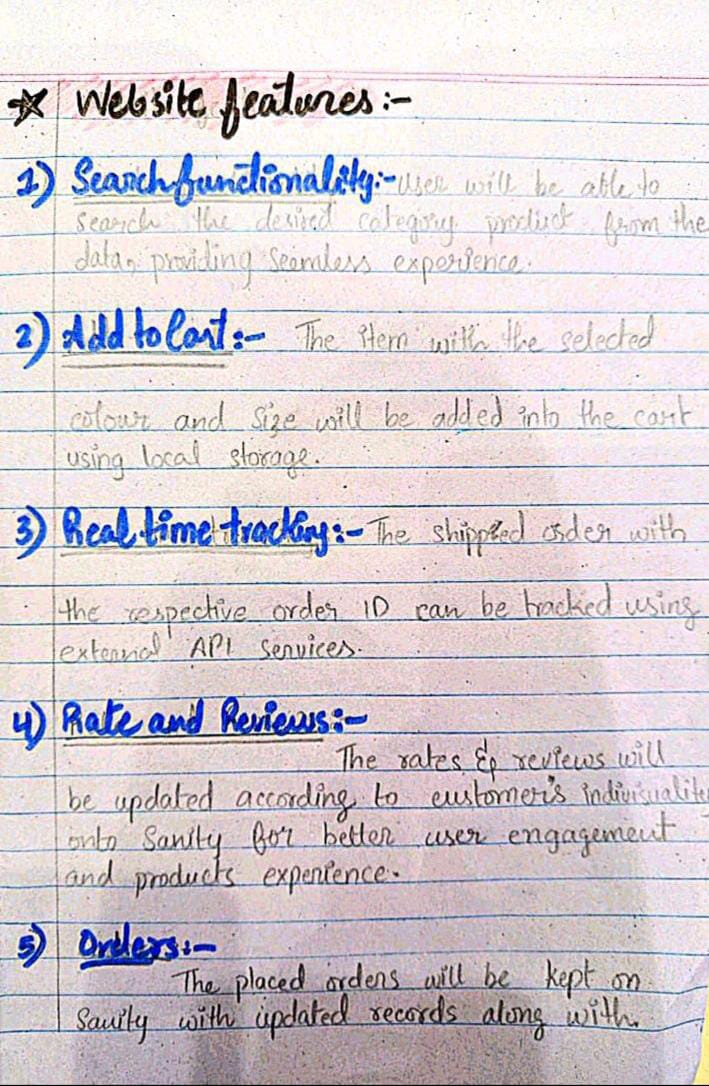 * Website features :-
1) Search functionality:- user will be able to
search the desired category product from the
data, providing seemless experience.
2) Add to Cart :- The item with the selected
colour and size will be added into the cart
using local storage.
3) Real time tracking :- The shippied order with
the respective order ID can be tracked using
external API services.
4) Rate and Reviews :-
The rates & reviews will
be updated according to customer's indivisuality
onto Sanity for better user engagement
and products experience.
5) Orders :-
The placed orders will be kept on
Sanity with updated records along with.